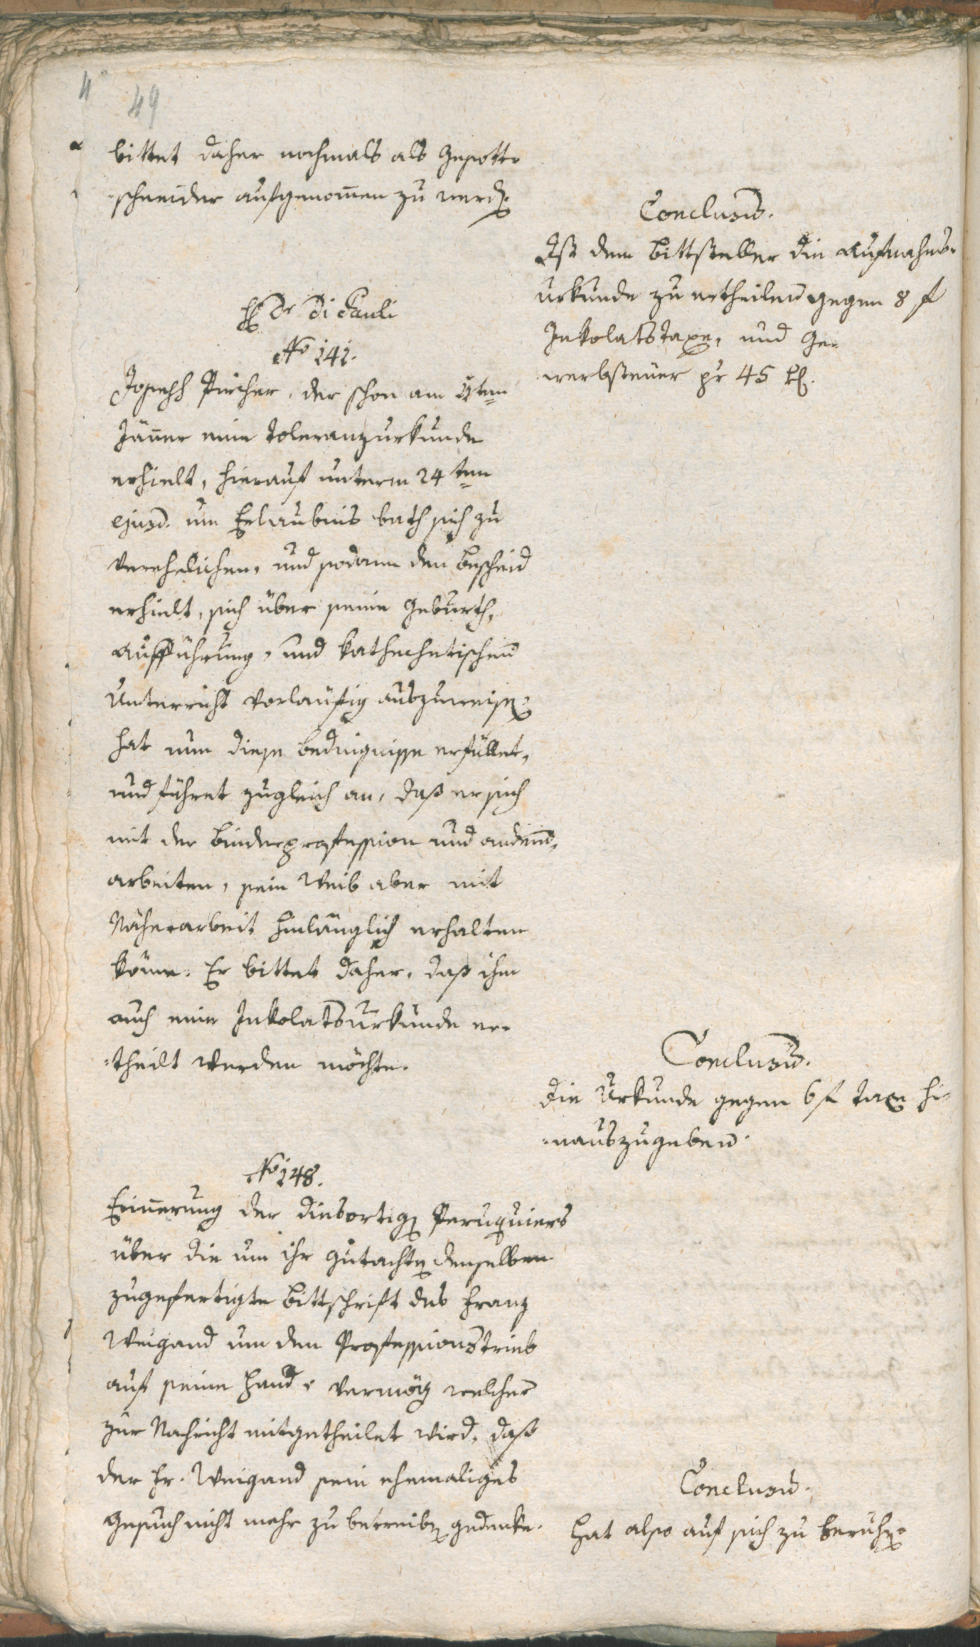 49
bittet daher nochmals als Gesott-
-schneider aufgenom̅en zu werd̅.
Conclusu̅.
Ist dem Bittsteller die Aufnahms-
urkunde zu ertheilen gegen 8 f
Inkolatstaxe, und Ge-
-werbsteuer pr 45 k.
H. Dr Di Pauli
No 141.
Joseph Pircher, der schon am ten
Jän̅er eine Toleranzurkunde
erhielt, hierauf unterm 24ten
ejusd. um Erlaubnis bath sich zu
verehelichen, und sodann den Bescheid
erhielt, sich über seine Geburth,
Aufführung, und kathechetischen
Unterricht vorläufig auszuweise̅.
hat nun diese Bedingnisse erfüllet,
und führet zugleich an, daß er sich
mit der Binderprofession und anderen
arbeiten, sein Weib aber mit
Näherarbeit hinlänglich erhalten
könne. Er bittet daher, daß ihm
auch eine Inkolatsurkunde er-
-theilt werden möchte.
Conclusu̅.
Die Urkunde gegen 6 f Taxe hi-
-nauszugeben.
No 148.
Erin̅erung der diesortig̅ Peruquiers
über die um ihr Gutachte̅ denselben
zugefertigte Bittschrift des Franz
Weigand um den Professionstrieb
auf seine Hand, vermög welcher
zur Nachricht mitgetheilet wird, daß
der Fr. Weigand sein ehemaliges
Gesuch nicht mehr zu betreibe̅ gedenke.
Conclusu̅.
Hat also auf sich zu beruhe̅.